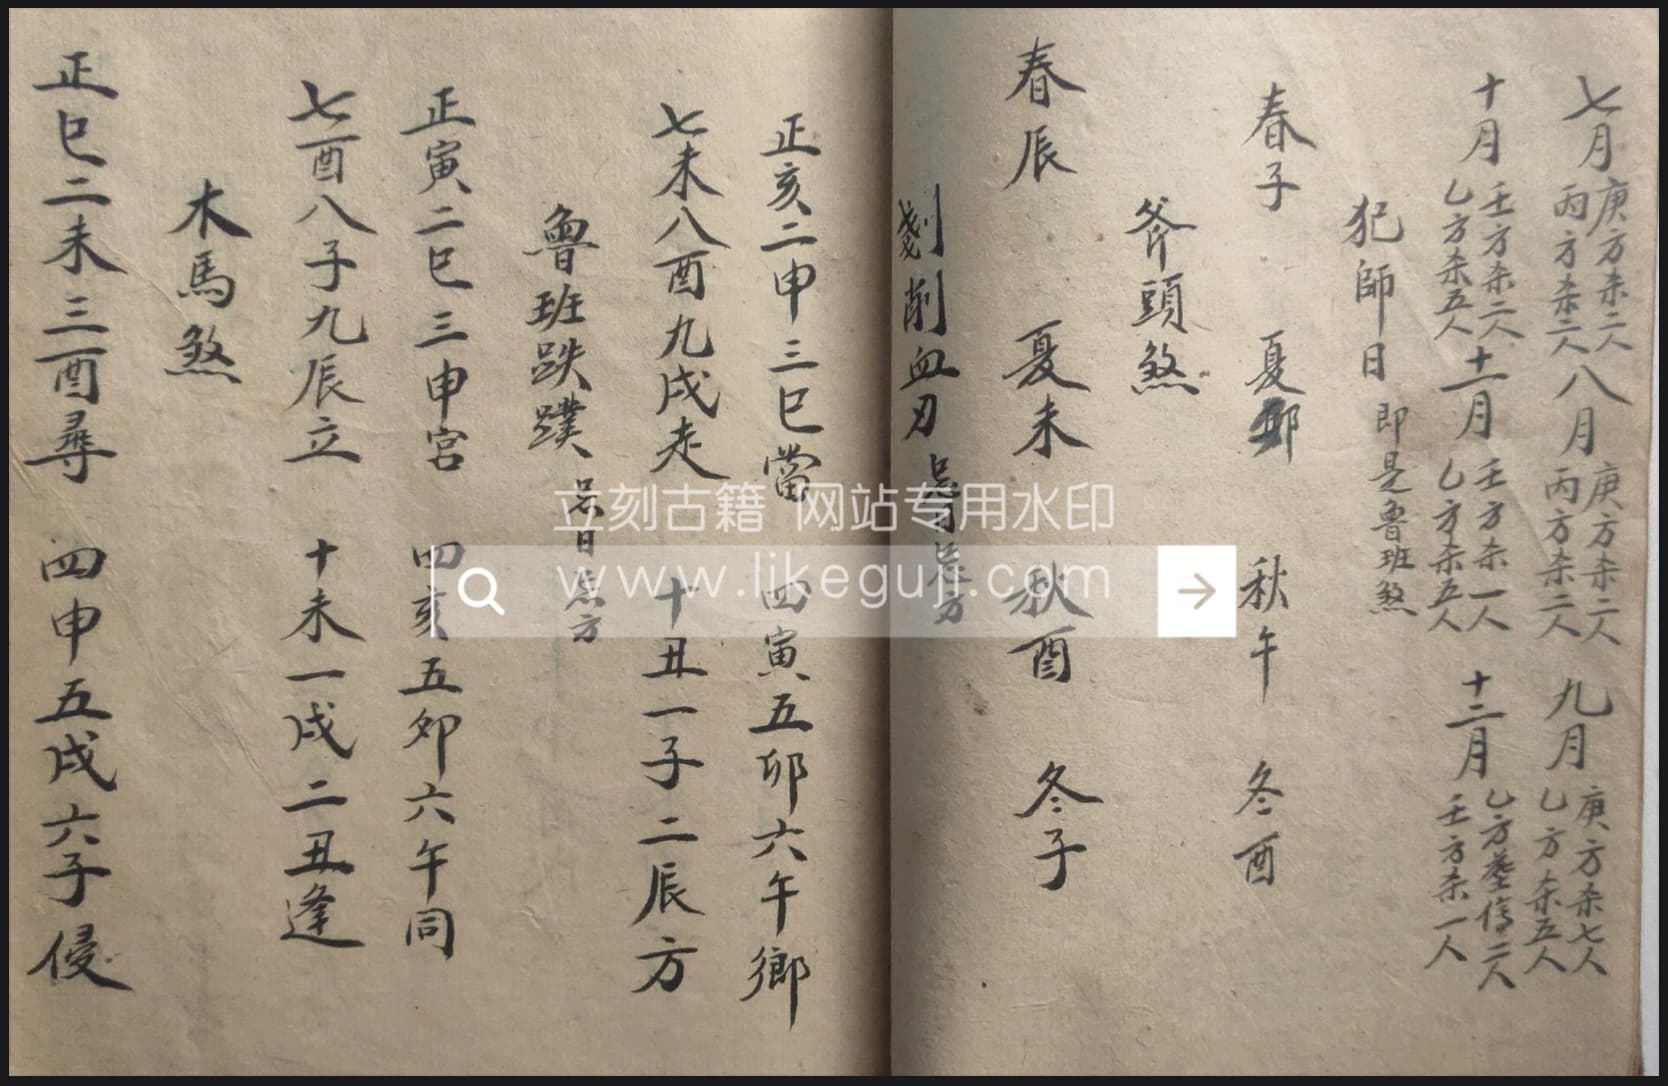 七月庚方杀二人丙方杀二人八月庚方杀二人丙方杀二人九月庚方杀七人乙方杀五人
十月壬方杀二人乙方杀五人十一月壬方杀一人乙方杀五人十二月乙方墓停二人壬方杀一人
犯師日即是魯班煞
春子 夏卯 秋午 冬酉
斧頭煞
春辰 夏未 秋酉 冬子
剗削血刃忌日忌方
正亥二申三巳當 四寅五卯六午鄉
七未八酉九戌走 十丑一子二辰方
魯班跌蹼忌日忌方
正寅二巳三申宮 四亥五卯六午同
七酉八子九辰立 十未一戌二丑逢
木馬煞
正巳二未三酉尋 四申五戌六子侵
立刻古籍 网站专用水印
www.likeguji.com